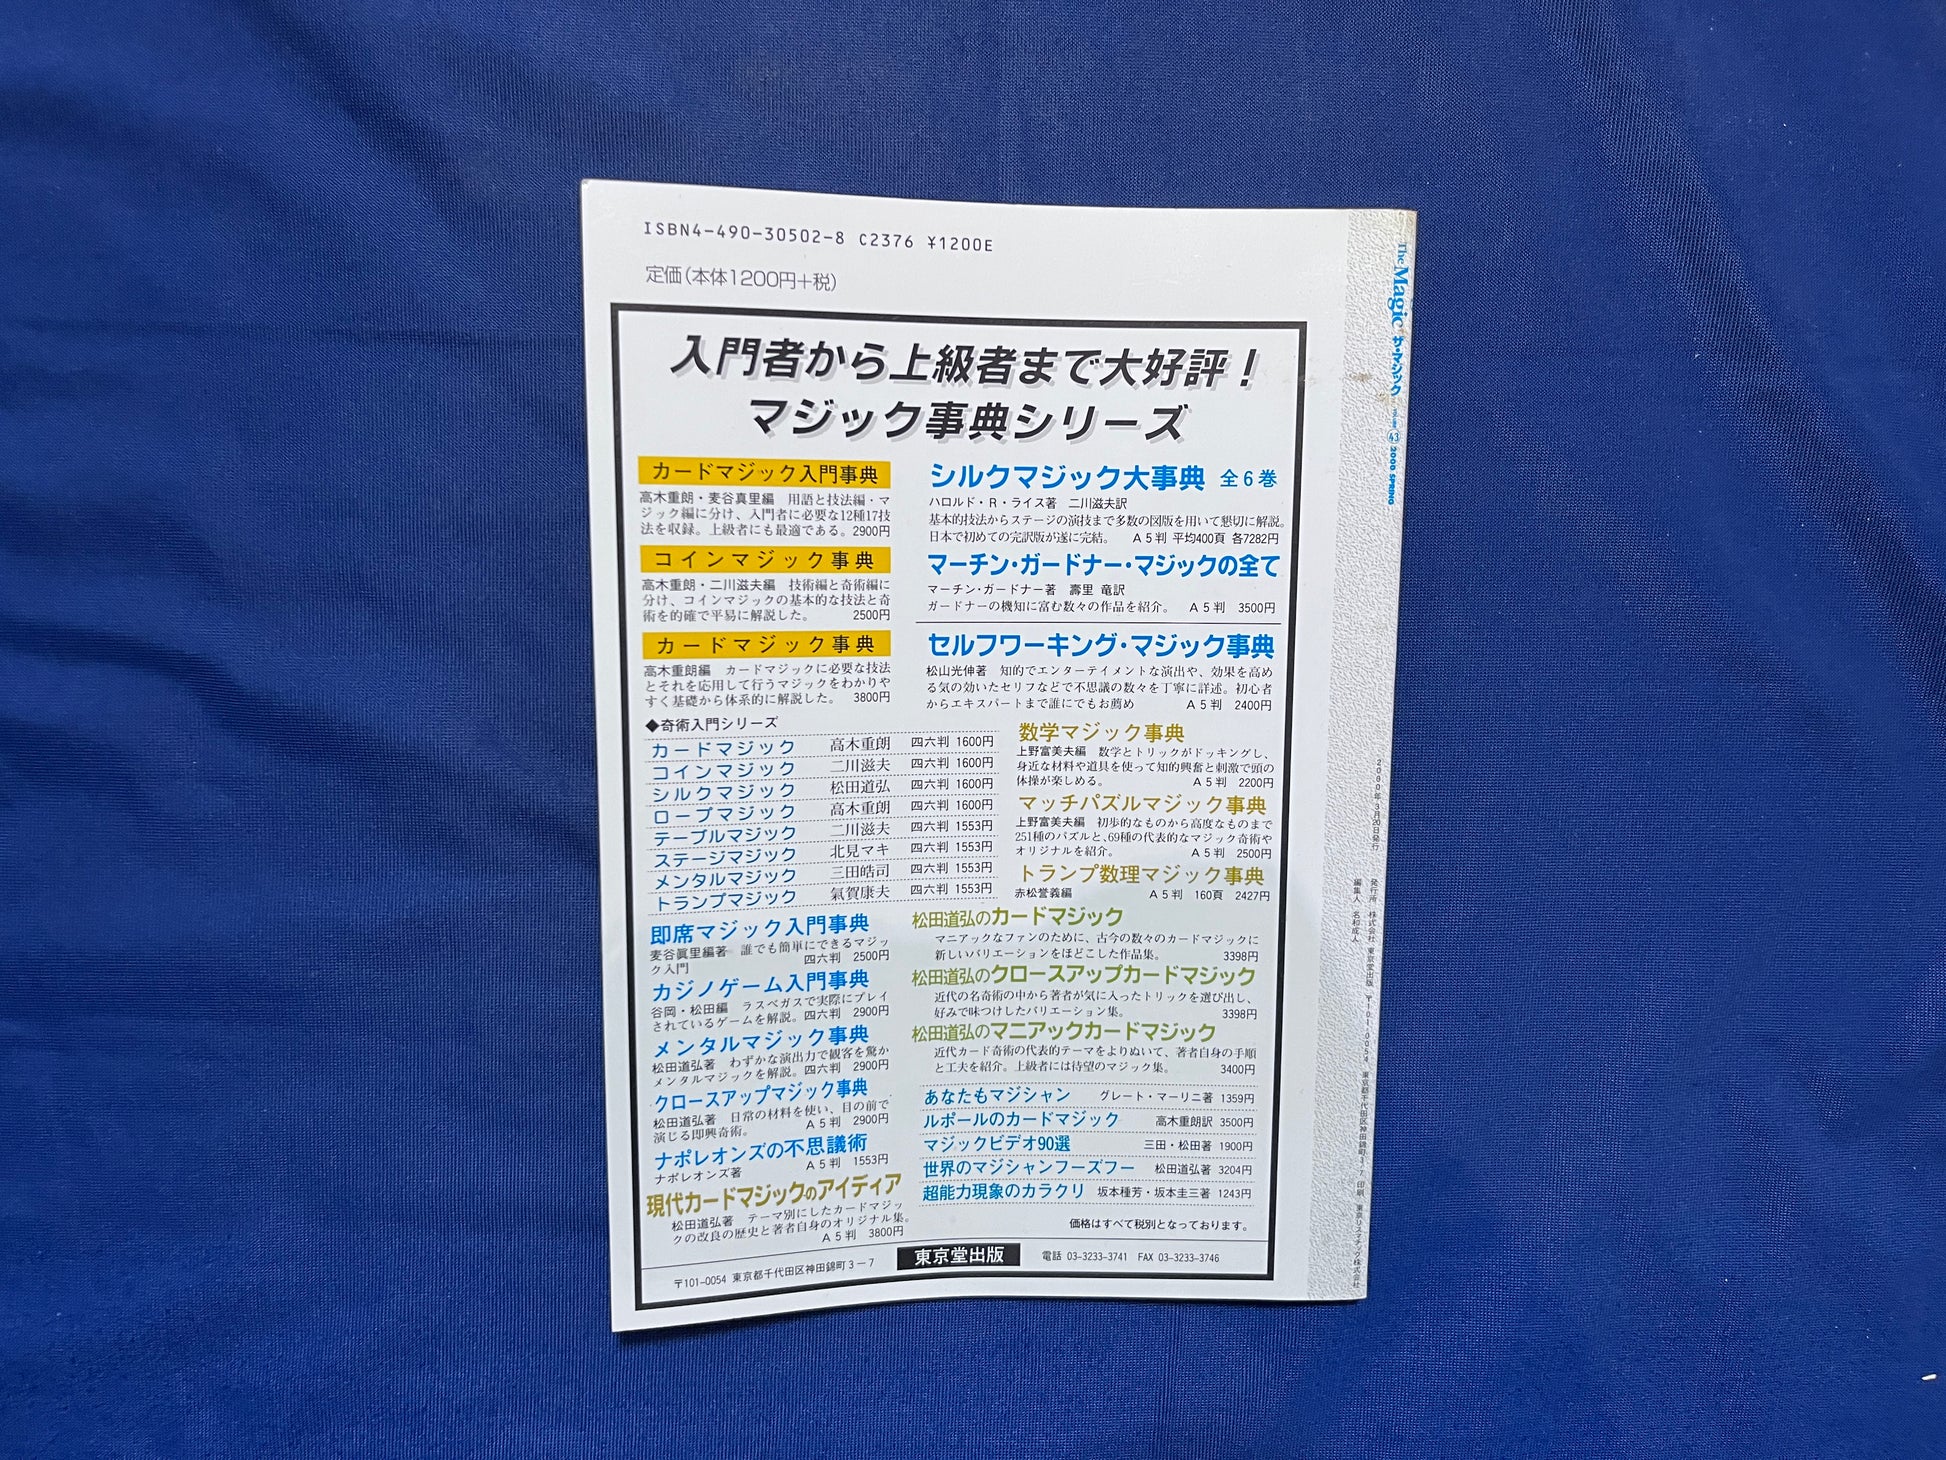 ISBN4-490-30502-8 C2376 ¥1200E
定価(本体1200円+税)
入門者から上級者まで大好評!
マジック事典シリーズ
カードマジック入門事典
高木重朗・麦谷真里編 用語と技法編・マ
ジック編に分け、入門者に必要な12種17技
法を収録。上級者にも最適である。2900円
コインマジック事典
高木重朗・二川滋夫編 技術編と奇術編に
分け、コインマジックの基本的な技法と奇
術を的確で平易に解説した。 2500円
カードマジック事典
高木重朗編 カードマジックに必要な技法
とそれを応用して行うマジックをわかりや
すく基礎から体系的に解説した。 3800円
◆奇術入門シリーズ
カードマジック 高木重朗 四六判 1600円
コインマジック 二川滋夫 四六判 1600円
シルクマジック 松田道弘 四六判 1600円
ロープマジック 高木重朗 四六判 1600円
テーブルマジック 二川滋夫 四六判 1553円
ステージマジック 北見マキ 四六判 1553円
メンタルマジック 三田皓司 四六判 1553円
トランプマジック 氣賀康夫 四六判 1553円
即席マジック入門事典
麦谷眞里編著 誰でも簡単にできるマジッ
ク入門 四六判 2500円
カジノゲーム入門事典
谷岡・松田編 ラスベガスで実際にプレイ
されているゲームを解説。四六判 2900円
メンタルマジック事典
松田道弘著 わずかな演出力で観客を驚か
メンタルマジックを解説。四六判 2900円
クロースアップマジック事典
松田道弘著 日常の材料を使い、目の前で
演じる即興奇術。 A5判 2900円
ナポレオンズの不思議術
ナポレオンズ著 A5判 1553円
現代カードマジックのアイディア
松田道弘著 テーマ別にしたカードマジッ
クの改良の歴史と著者自身のオリジナル集。
A5判 3800円
シルクマジック大事典 全6巻
ハロルド・R・ライス著 二川滋夫訳
基本的技法からステージの演技まで多数の図版を用いて懇切に解説。
日本で初めての完訳版が遂に完結。 A5判 平均400頁 各7282円
マーチン・ガードナー・マジックの全て
マーチン・ガードナー著 壽里 竜訳
ガードナーの機知に富む数々の作品を紹介。 A5判 3500円
セルフワーキング・マジック事典
松山光伸著 知的でエンターテイメントな演出や、効果を高め
る気の効いたセリフなどで不思議の数々を丁寧に詳述。初心者
からエキスパートまで誰にでもお薦め A5判 2400円
数学マジック事典
上野富美夫編 数学とトリックがドッキングし、
身近な材料や道具を使って知的興奮と刺激で頭の
体操が楽しめる。 A5判 2200円
マッチパズルマジック事典
上野富美夫編 初歩的なものから高度なものまで
251種のパズルと、69種の代表的なマジック奇術や
オリジナルを紹介。 A5判 2500円
トランプ数理マジック事典
赤松誉義編 A5判 160頁 2427円
松田道弘のカードマジック
マニアックなファンのために、古今の数々のカードマジックに
新しいバリエーションをほどこした作品集。 3398円
松田道弘のクロースアップカードマジック
近代の名奇術の中から著者が気に入ったトリックを選び出し、
好みで味つけしたバリエーション集。 3398円
松田道弘のマニアックカードマジック
近代カード奇術の代表的テーマをよりぬいて、著者自身の手順
と工夫を紹介。上級者には待望のマジック集。 3400円
あなたもマジシャン グレート・マーリニ著 1359円
ルポールのカードマジック 高木重朗訳 3500円
マジックビデオ90選 三田・松田著 1900円
世界のマジシャンフーズフー 松田道弘著 3204円
超能力現象のカラクリ 坂本種芳・坂本圭三著 1243円
価格はすべて税別となっております。
〒101-0054 東京都千代田区神田錦町3-7 東京堂出版 電話 03-3233-3741 FAX 03-3233-3746
The Magic ザ・マジック 43 2000 SPRING
2000年3月20日発行
発行所 株式会社 東京堂出版 〒101-0054 東京都千代田区神田錦町3-7 印刷 東京リスマチック株式会社
編集人 名和成人